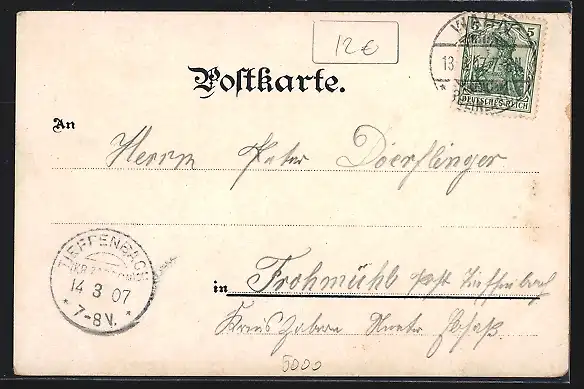 12€
5
13
DEUTSCHES REICH
Postkarte.
An
Herrn Peter Doerflinger
TIEFFENBACH
14 3 07
* 7-8V. *
in Frohmühl post Tieffenbach
Kreis Zabern Unter Elsaß
5000